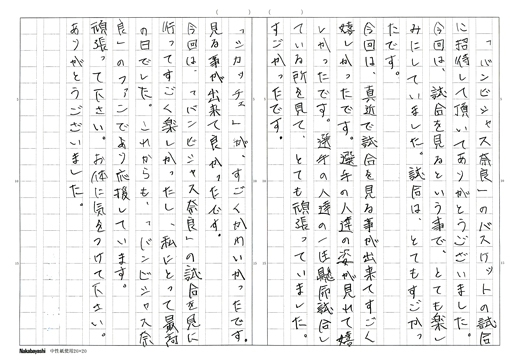 「バンビシャス奈良」のバスケットの試合
に招待して頂いてありがとうございました。
今回は、試合を見るという事で、とても楽し
みにしていました。試合は、とてもすごか
たです。
今回は、真近で試合を見る事が出来てすごく
嬉しかったです。選手の人達の姿が見れて嬉
しかったです。選手の人達の一生懸命試合し
ている所を見て、とても頑張っていました。
すごかったです。
「シカッチェ」が、すごくかわいかったです。
見る事が出来て良かったです。
今回は、「バンビシャス奈良」の試合を見に
行ってすごく楽しかったし、私にとって最高
の日でした。これからも、「バンビシャス奈
良」のファンであり応援しています。
頑張って下さい。お体に気をつけて下さい。
ありがとうございました。
Nakabayashi 中性紙使用20×20